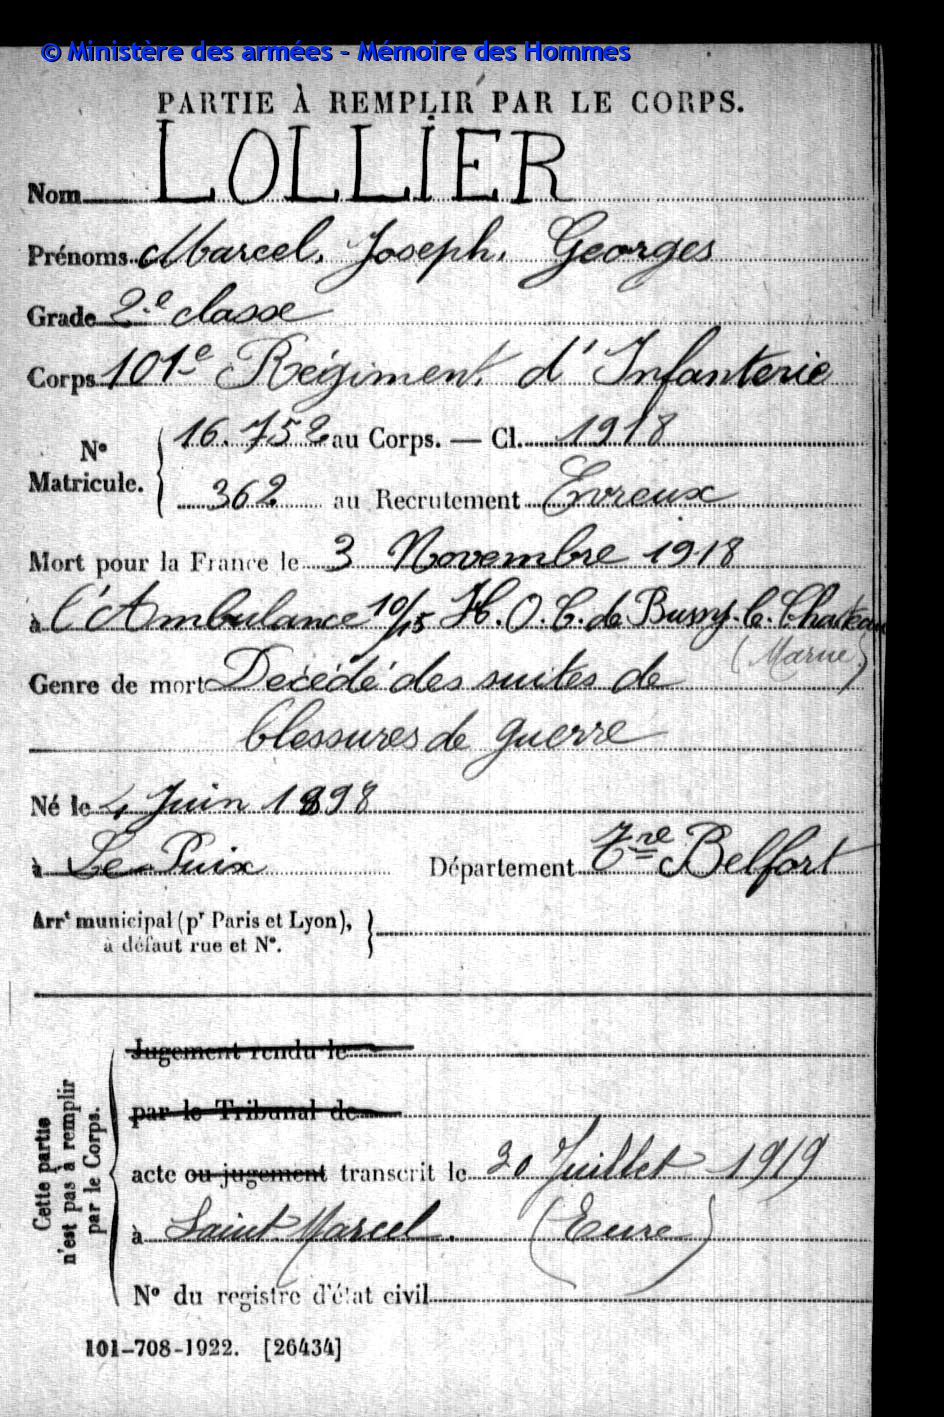 © Ministère des armées - Mémoire des Hommes
PARTIE À REMPLIR PAR LE CORPS.
Nom LOLLIER
Prénoms Marcel, Joseph, Georges
Grade 2e classe
Corps 101e Régiment d'Infanterie
N° Matricule. { 16.752 au Corps. — Cl. 1918
362 au Recrutement Evreux
Mort pour la France le 3 Novembre 1918
à l'Ambulance 10/15 H.O.E. de Bussy-le-Chateau
(Marne)
Genre de mort Décédé des suites de
blessures de guerre
Né le 4 Juin 1898
à Le Puix Département Tre Belfort
Arrt municipal (pr Paris et Lyon),
à défaut rue et N°. }
Cette partie
n'est pas à remplir
par le Corps.
Jugement rendu le
par le Tribunal de
acte ou jugement transcrit le 30 Juillet 1919
à Saint Marcel. (Eure)
N° du registre d'état civil
101-708-1922. [26434]